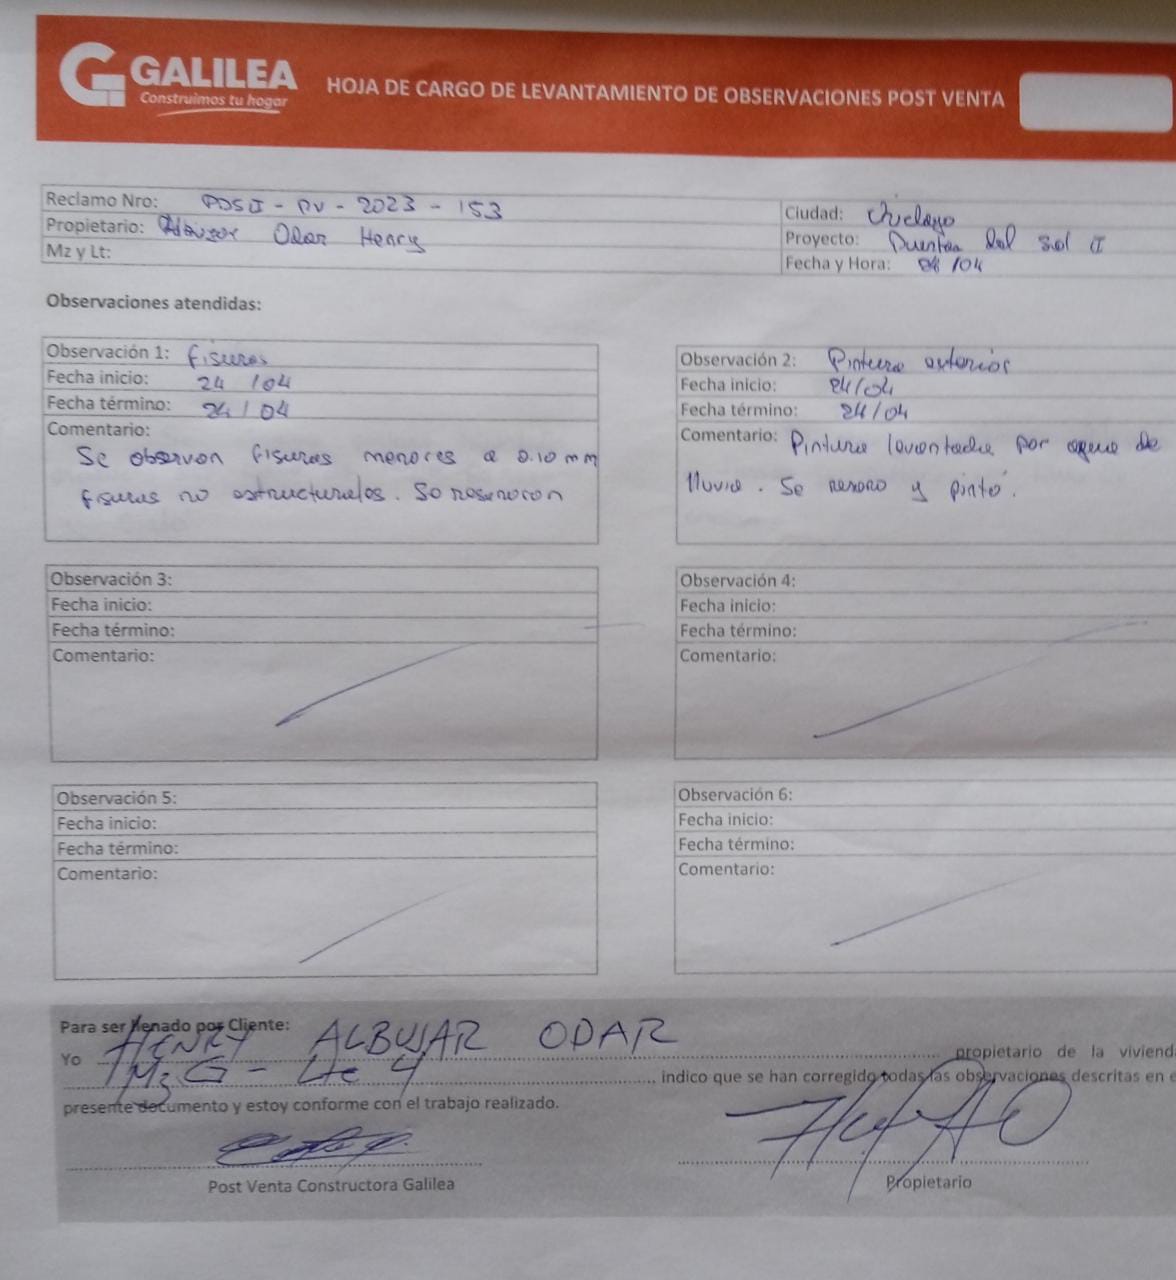 GALILEA
Construimos tu hogar
HOJA DE CARGO DE LEVANTAMIENTO DE OBSERVACIONES POST VENTA
Reclamo Nro: PDSI - PV - 2023 - 153
Propietario: Albujar Odar Henry
Mz y Lt:
Ciudad: Chiclayo
Proyecto: Puertas del Sol I
Fecha y Hora: 24/04
Observaciones atendidas:
Observación 1: fisuras
Fecha inicio: 24/04
Fecha término: 24/04
Comentario:
Se observan fisuras menores a 0.10 mm
fisuras no estructurales. Se resanaron
Observación 2: Pintura exterior
Fecha inicio: 24/04
Fecha término: 24/04
Comentario: Pintura levantada por agua de
lluvia. Se resano y pintó.
Observación 3:
Fecha inicio:
Fecha término:
Comentario:
Observación 4:
Fecha inicio:
Fecha término:
Comentario:
Observación 5:
Fecha inicio:
Fecha término:
Comentario:
Observación 6:
Fecha inicio:
Fecha término:
Comentario:
Para ser llenado por Cliente:
Yo HENRY ALBUJAR ODAR propietario de la viviend
Mz G - Lte 4, indico que se han corregido todas las observaciones descritas en e
presente documento y estoy conforme con el trabajo realizado.
Post Venta Constructora Galilea
Propietario